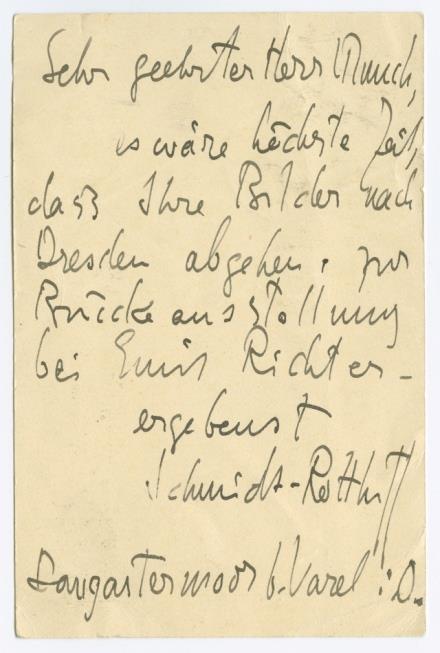 Sehr geehrter Herr Munch,
es wäre höchste Zeit,
dass Ihre Bilder nach
Dresden abgehen. zur
Brückeausstellung
bei Emil Richter –
ergebenst
Schmidt-Rottluff
Dangastermoor b. Varel i. O.